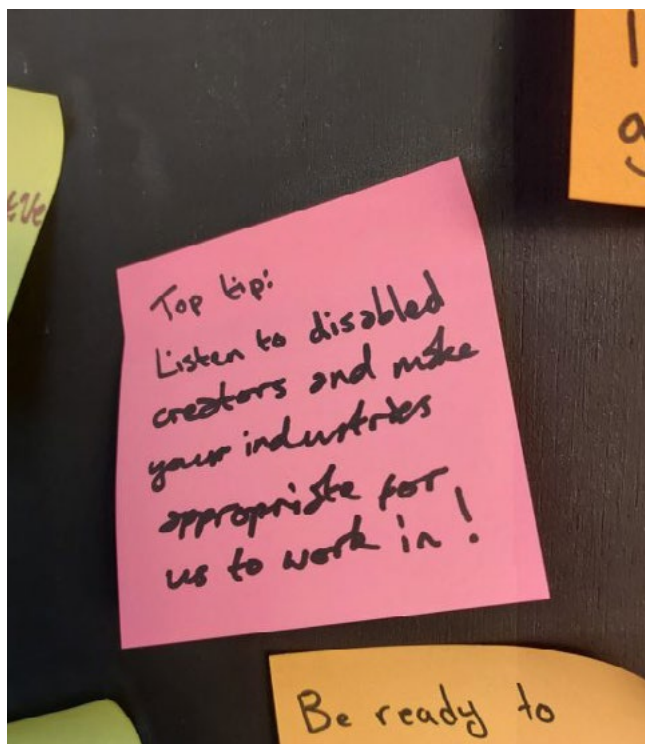 Top tip:
Listen to disabled
creators and make
your industries
appropriate for
us to work in!
Be ready to